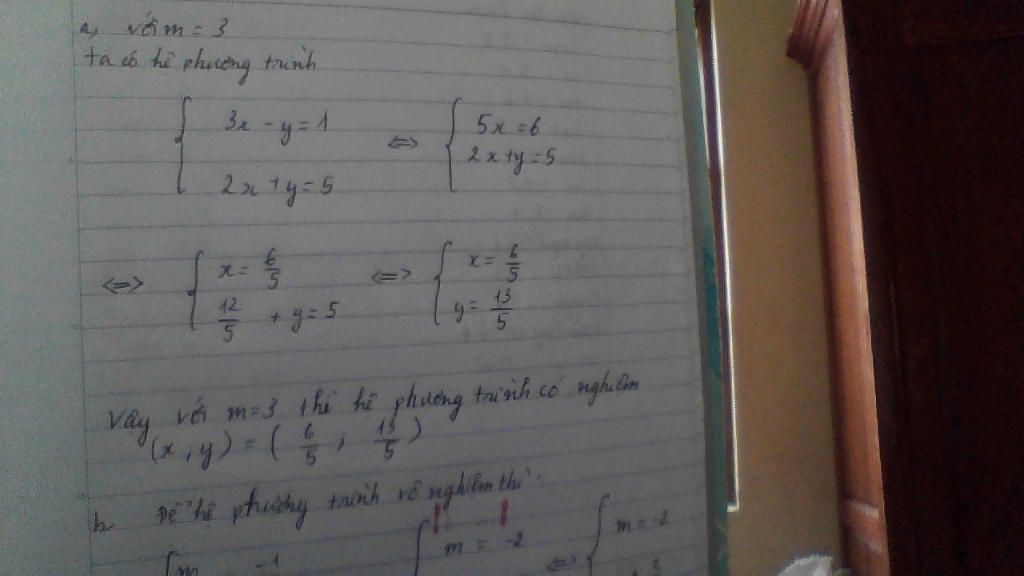 a, với m = 3
ta có hệ phương trình
{ 3x - y = 1 ; 2x + y = 5 <=> { 5x = 6 ; 2x + y = 5
<=> { x = 6/5 ; 12/5 + y = 5 <=> { x = 6/5 ; y = 13/5
Vậy với m = 3 thì hệ phương trình có nghiệm
(x, y) = ( 6/5 ; 13/5 )
b, Để hệ phương trình vô nghiệm thì:
{ m -1 { m = -2 <=> { m = -2